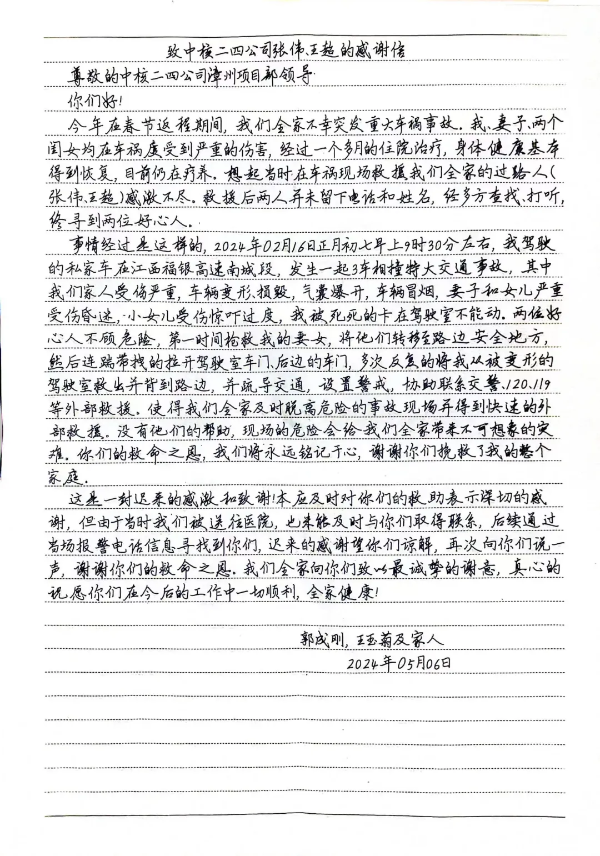 致中核二四公司张伟、王超的感谢信
尊敬的中核二四公司漳州项目部领导:
你们好!
今年在春节返程期间,我们全家不幸突发重大车祸事故。我、妻子、两个
闺女均在车祸虔受到严重的伤害,经过一个多月的住院治疗,身体健康基本
得到恢复,目前仍在疗养。想起当时在车祸现场救援我们全家的过路人(
张伟、王超)感激不尽。救援后两人并未留下电话和姓名,经多方查找、打听,
终寻到两位好心人。
事情经过是这样的,2024年02月16日正月初七早上9时30分左右,我驾驶
的私家车在江西福银高速南城段,发生一起3车相撞特大交通事故,其中
我们家人受伤严重,车辆变形、损毁,气囊爆开,车辆冒烟,妻子和女儿严重
受伤昏迷,小女儿受伤惊吓过度,我被死死的卡在驾驶室不能动。两位好
心人不顾危险,第一时间抢救我的妻女,将他们转移至路边安全地方,
然后连踹带拽的拉开驾驶室车门、后边的车门,多次反复的将我从被变形的
驾驶室救出并背到路边,并疏导交通,设置警戒,协助联系交警、120、119
等外部救援。使得我们全家及时脱离危险的事故现场并得到快速的外
部救援。没有他们的帮助,现场的危险会给我们全家带来不可想象的灾
难。你们的救命之恩,我们将永远铭记于心,谢谢你们挽救了我的整个
家庭。
这是一封迟来的感激和致谢!本应及时对你们的救助表示深切的感
谢,但由于当时我们被送往医院,也未能及时与你们取得联系,后续通过
当场报警电话信息寻找到你们,迟来的感谢望你们谅解,再次向你们说一
声,谢谢你们的救命之恩。我们全家向你们致以最诚挚的谢意,真心的
祝愿你们在今后的工作中一切顺利,全家健康!
郭成刚,王玉菊及家人
2024年05月06日